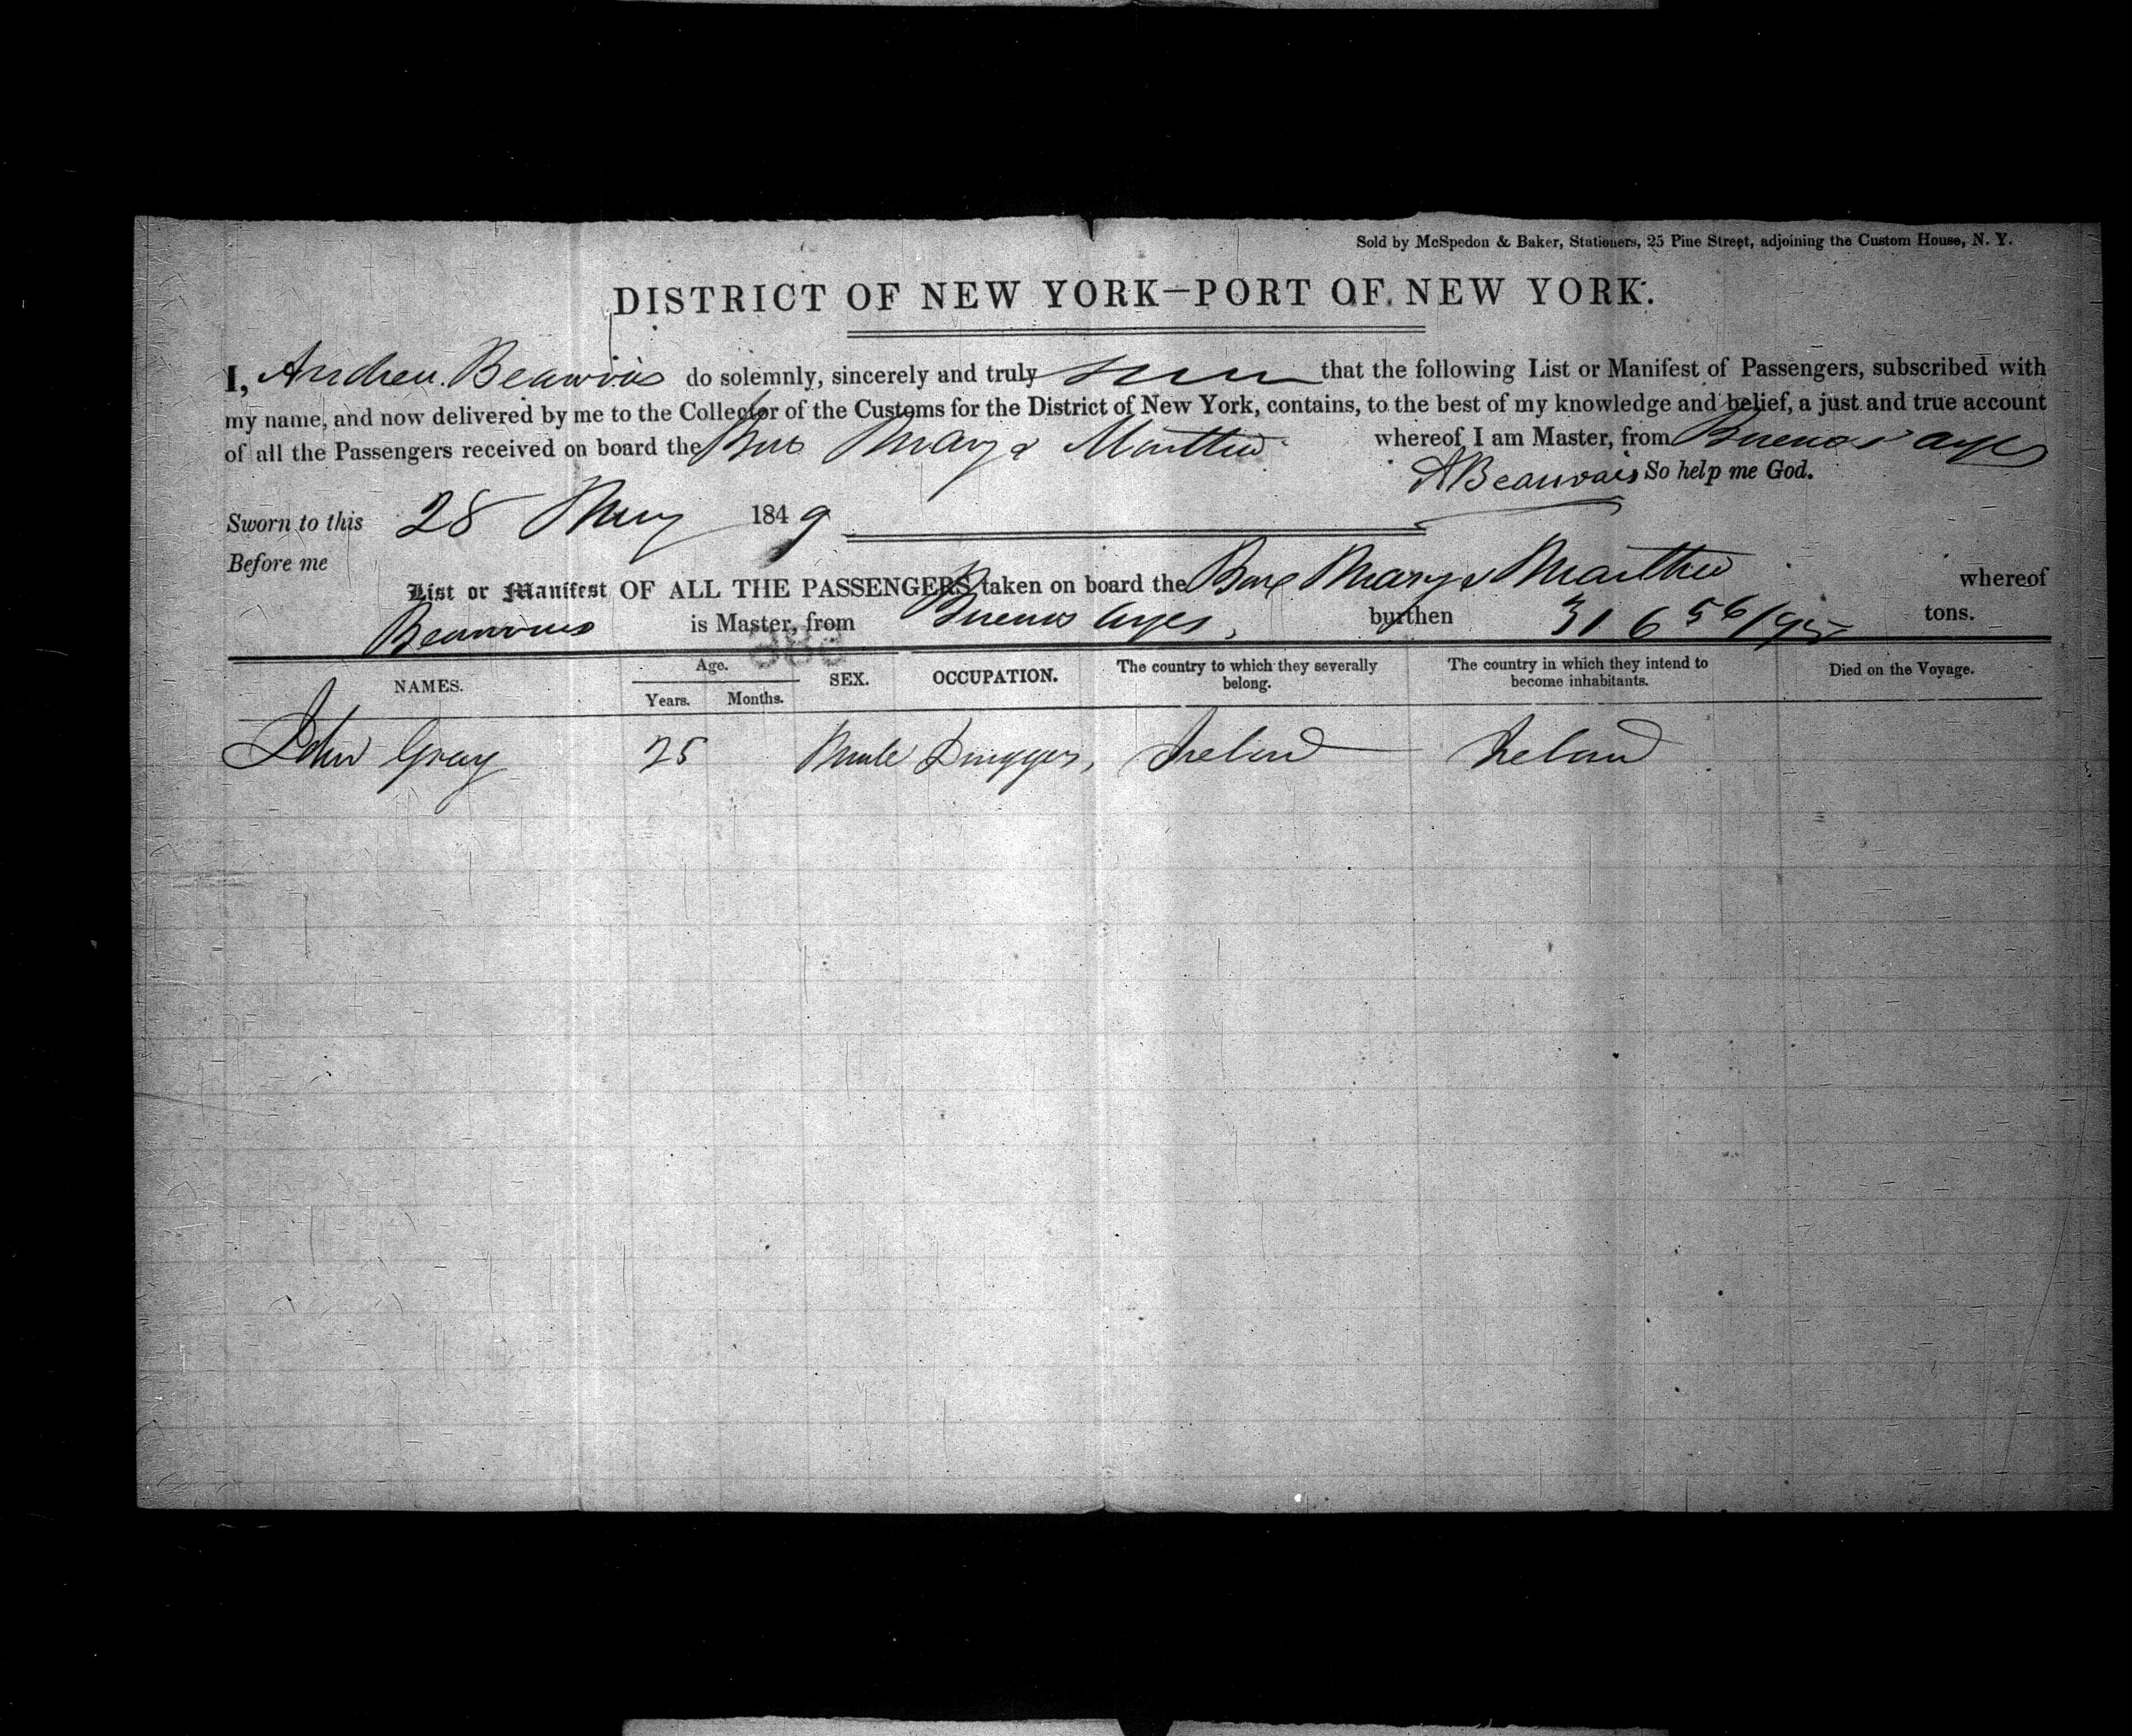 Sold by McSpedon & Baker, Stationers, 25 Pine Street, adjoining the Custom House, N. Y.
DISTRICT OF NEW YORK—PORT OF NEW YORK.
I, Andrew Beauvais do solemnly, sincerely and truly swear that the following List or Manifest of Passengers, subscribed with
my name, and now delivered by me to the Collector of the Customs for the District of New York, contains, to the best of my knowledge and belief, a just and true account
of all the Passengers received on board the Mary & Martha whereof I am Master, from Buenos Ayres
A Beauvais So help me God.
Sworn to this 28 May 1849
Before me
List or Manifest OF ALL THE PASSENGERS taken on board the Mary & Martha whereof
Beauvais is Master, from Buenos Ayres, burthen 316 56/95 tons.
NAMES. Age. Years. Months. SEX. OCCUPATION. The country to which they severally belong. The country in which they intend to become inhabitants. Died on the Voyage.
John Gray 25 Male Ireland Ireland